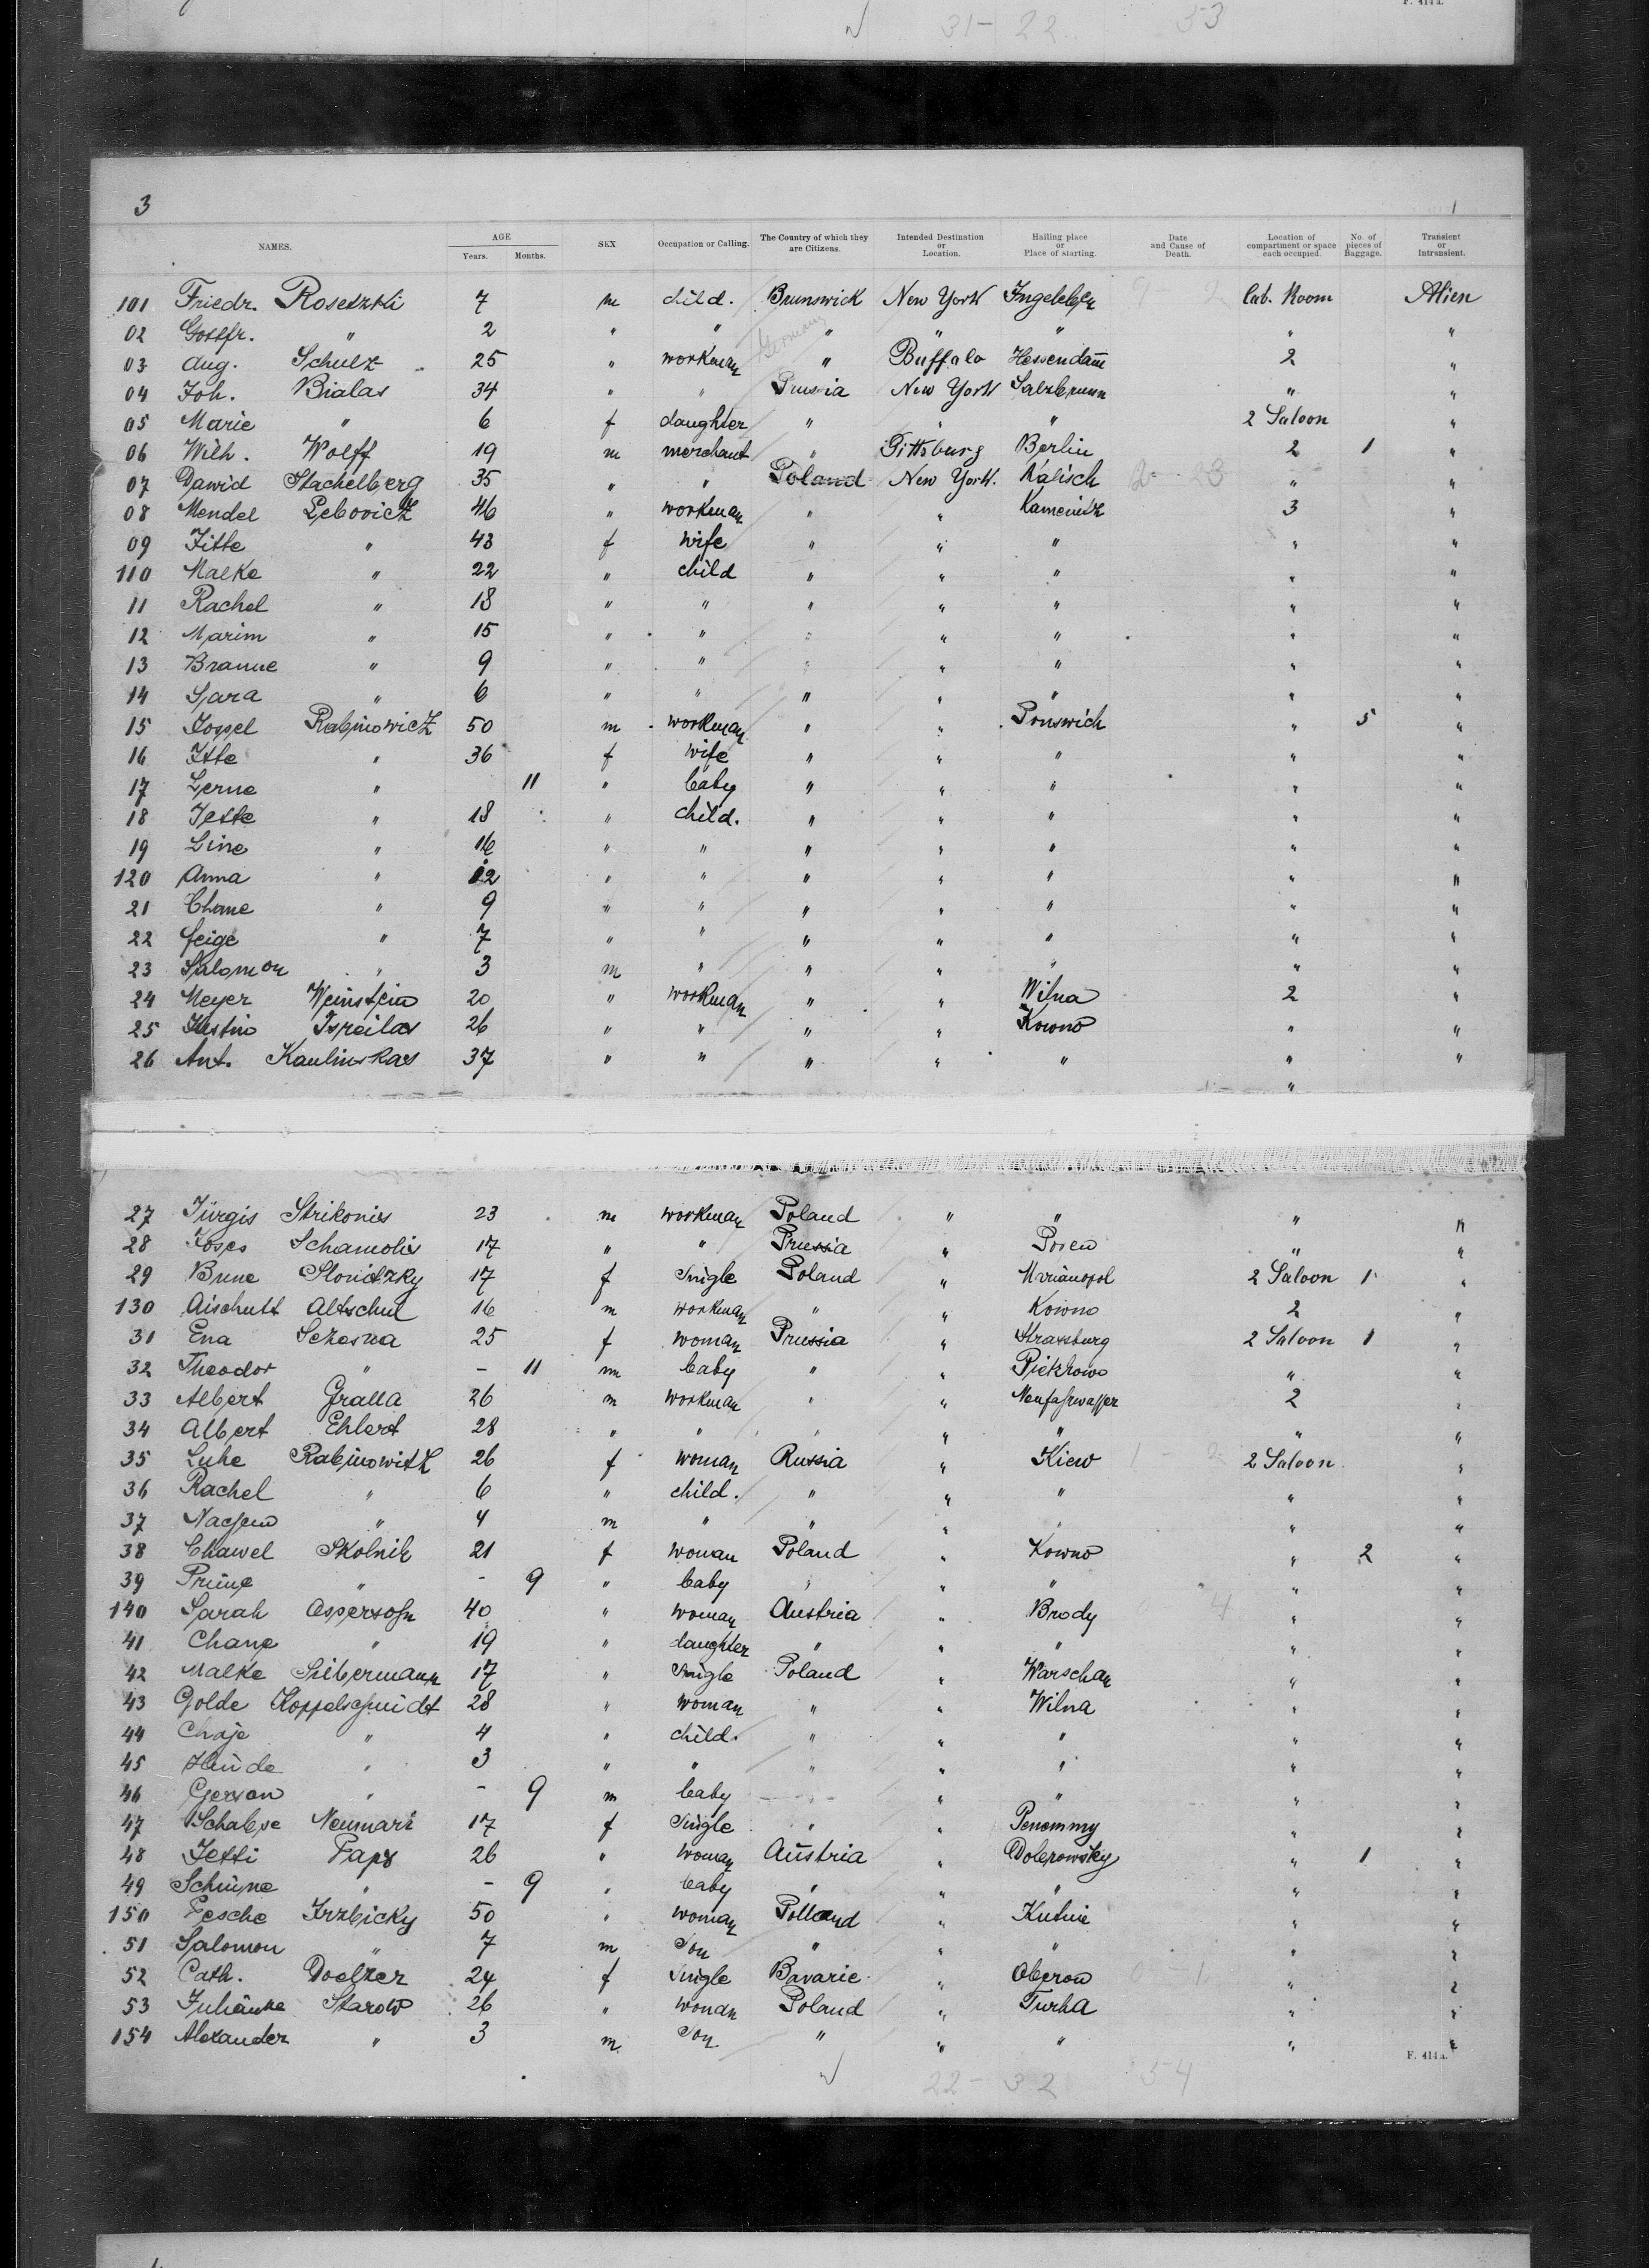 F. 414a.
31-22 53
3 1
NAMES. AGE Years. Months. SEX Occupation or Calling. The Country of which they are Citizens. Intended Destination or Location. Hailing place or Place of starting. Date and Cause of Death. Location of compartment or space each occupied. No. of pieces of Baggage. Transient or Intransient.
101 Friedr. Rosetzki 7 m child. Brunswick New York Ingeleben 9 2 Cab. Room Alien
02 Gottfr. " 2 " " " Germany " " " "
03 Aug. Schulz 25 " workman " Buffalo Hessendam̄ 2 "
04 Joh. Bialas 34 " " Prussia New York Salzbrunn " "
05 Marie " 6 f daughter " " " 2 Saloon "
06 Wilh. Wolff 19 m merchant " Pittsburg Berlin 2 1 "
07 Dawid Stachelberg 35 " " Poland New York. Kalisch 2-23 " "
08 Mendel Lebovicz 46 " workman " " Kamenitz 3 "
09 Zitte " 43 f wife " " " " "
110 Malke " 22 " child " " " " "
11 Rachel " 18 " " " " " " "
12 Marim " 15 " " " " " " "
13 Branne " 9 " " " " " " "
14 Sara " 6 " " " " " " "
15 Jossel Rabinowicz 50 m workman " " Ponswich " 5 "
16 Itte " 36 f wife " " " " "
17 Lerne " 11 " baby " " " " "
18 Jette " 18 " child. " " " " "
19 Line " 16 " " " " " " "
120 Anna " 12 " " " " " " "
21 Chane " 9 " " " " " " "
22 Feige " 7 " " " " " " "
23 Salomon " 3 m " " " " " "
24 Meyer Weinstein 20 " workman " " Wilna 2 "
25 Justin Isreilas 26 " " " " Kowno " "
26 Ant. Kaulinskas 37 " " " " " " "
"
27 Jürgis Strikonis 23 m workman Poland " " " "
28 Joses Schamolis 17 " " Prussia " Posen " "
29 Bune Slonitzky 17 f Single Poland " Marianopol 2 Saloon 1 "
130 Aischutt Altschul 16 m workman " " Kowno 2 "
31 Eva Sczesna 25 f woman Prussia " Strassburg 2 Saloon 1 "
32 Theodor " - 11 m baby " " Pietzkowo " "
33 Albert Gralla 26 m workman " " Neufahrwasser 2 "
34 Albert Ehlert 28 " " " " " " "
35 Luhe Rabinowitz 26 f woman Russia " Kiew 1-2 2 Saloon "
36 Rachel " 6 " child. " " " " "
37 Nachem " 4 m " " " " " "
38 Chawel Skolnik 21 f woman Poland " Kowno " 2 "
39 Prüne " - 9 " baby " " " " "
140 Sarah Aspersohn 40 " woman Austria " Brody 0 4 " "
41 Chane " 19 " daughter " " " " "
42 Malke Silbermann 17 " Single Poland " Warschau " "
43 Golde Koppelschmidt 28 " woman " " Wilna " "
44 Chaje " 4 " child. " " " " "
45 Hinde " 3 " " " " " " "
46 Gerson " - 9 m baby " " " " "
47 Schabse Neumark 17 f Single " " Penemmy " "
48 Jetti Paps 26 " woman Austria " Dobrowsky " 1 "
49 Schüne " - 9 " baby " " " " "
150 Pesche Irzbicky 50 " woman Polland " Kutnie " "
51 Salomon " 7 m Son " " " " "
52 Cath. Doelzer 24 f Single Bavarie " Oberow 0-1 " "
53 Julianke Starow 26 " woman Poland " Turka " "
154 Alexander " 3 m Son " " " " "
F. 414a.
22-32 54